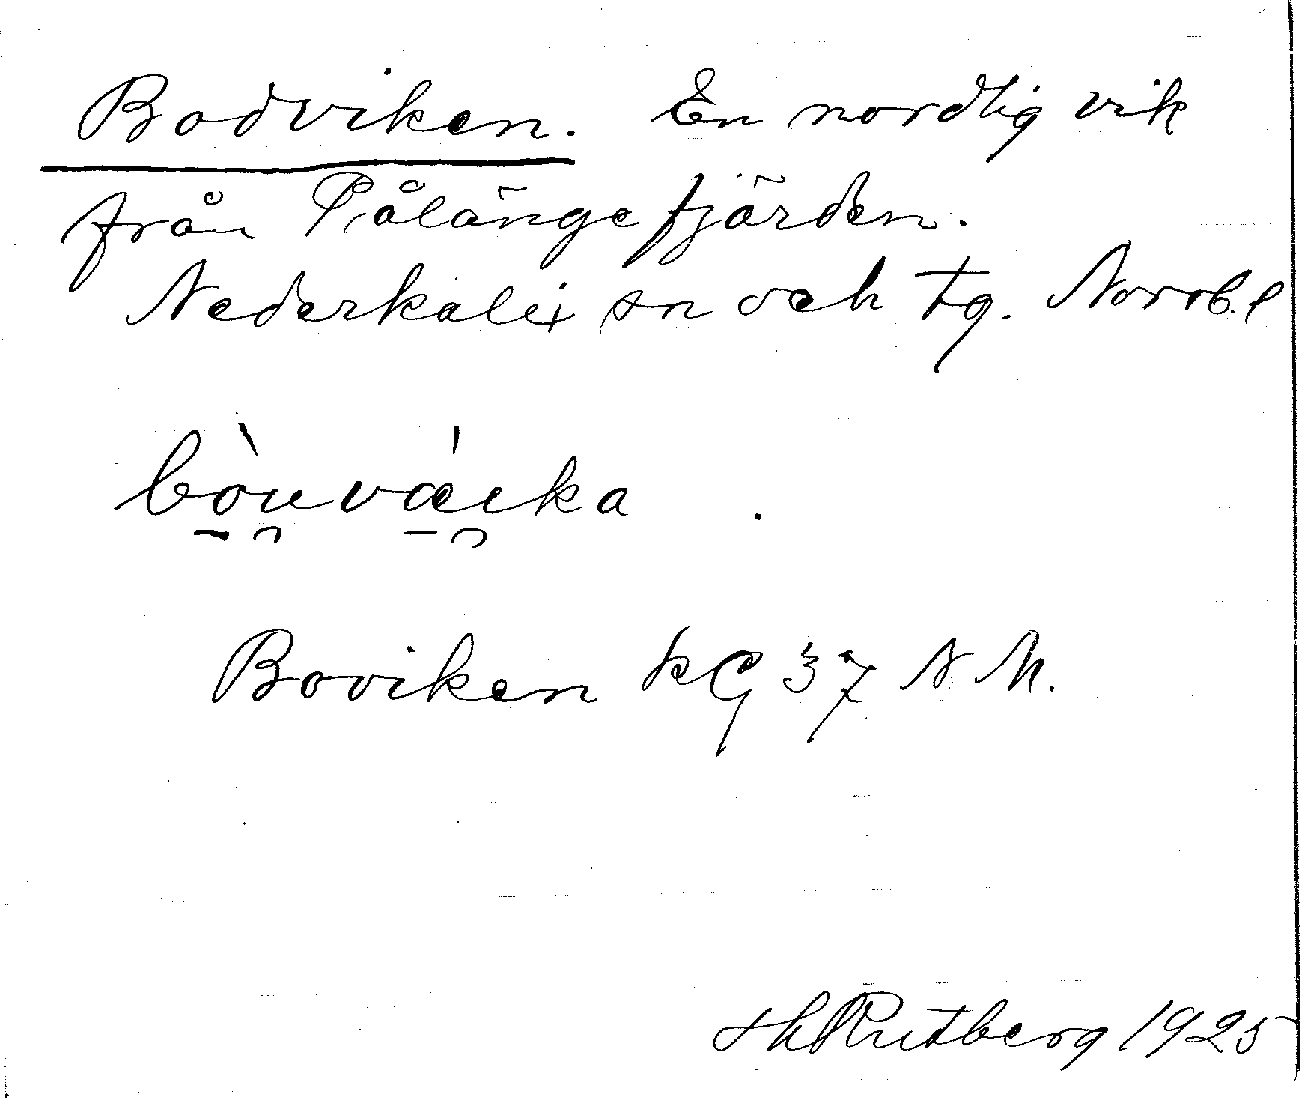 Bodviken. En nordlig vik
från Pålängefjärden.
Nederkalix sn och tg. Norrb. l
bòu̯vái̯ka
Boviken KG 37 N M.
Rutberg 1925